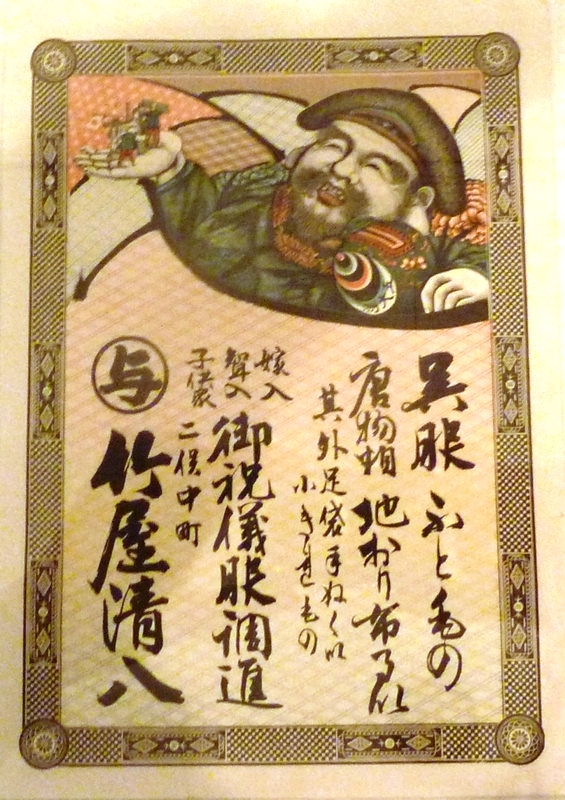 呉服 ふともの
唐物類 地おり布るい
其外足袋手ぬくい
小きれもの
嫁入
聟入
御祝儀服調進
二俣中町
与
竹屋清八